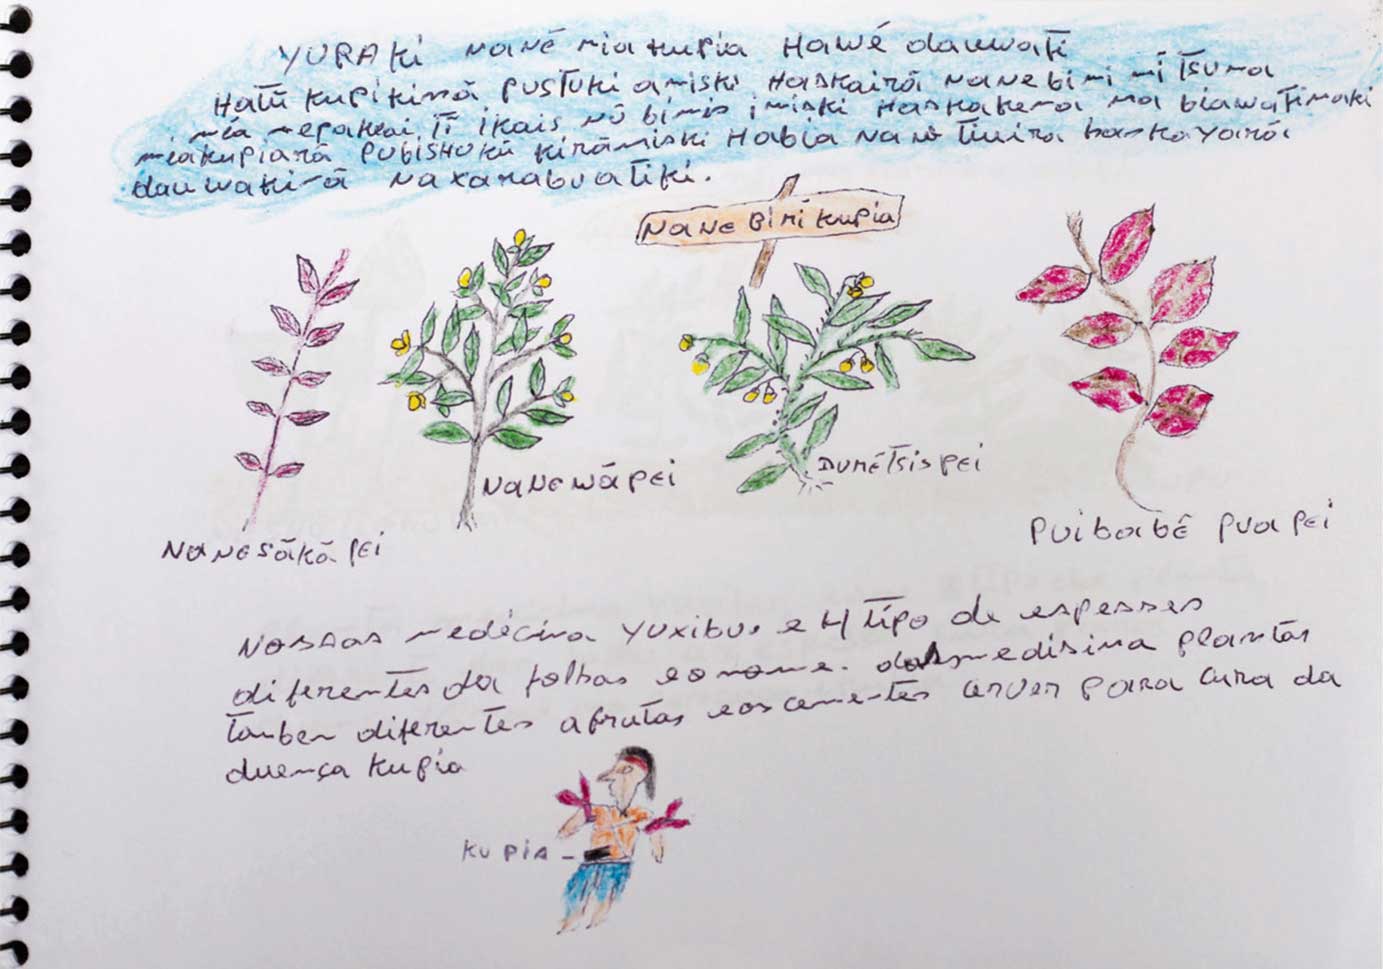 YURAKi NANẼ mia kupia HAWẼ dauwati
Hatũ kupikinã pustuki amiski Haskairã nane bimi mi tsuma
mia mepakai, Ti ikais nũ bimis imiski Haskakena ma biawatimaki
miakupiarã pubishukũ kirãmiski Habia Nane Tinira haskayarã
dauwakinã naxarabuatiki.
NANE Bimi kupia
NANEWÃPEi
DUMẼTSiSPEi
NANESÃKÃPEi
PuibabẼ pua pei
Nossas medécina yuxibus e 4 tipo de espesses
diferentes da folhas eo nome. das medisina plantas
tanben diferentes a frutas eos cementes cerven para cura da
duença kupia
KUPiA